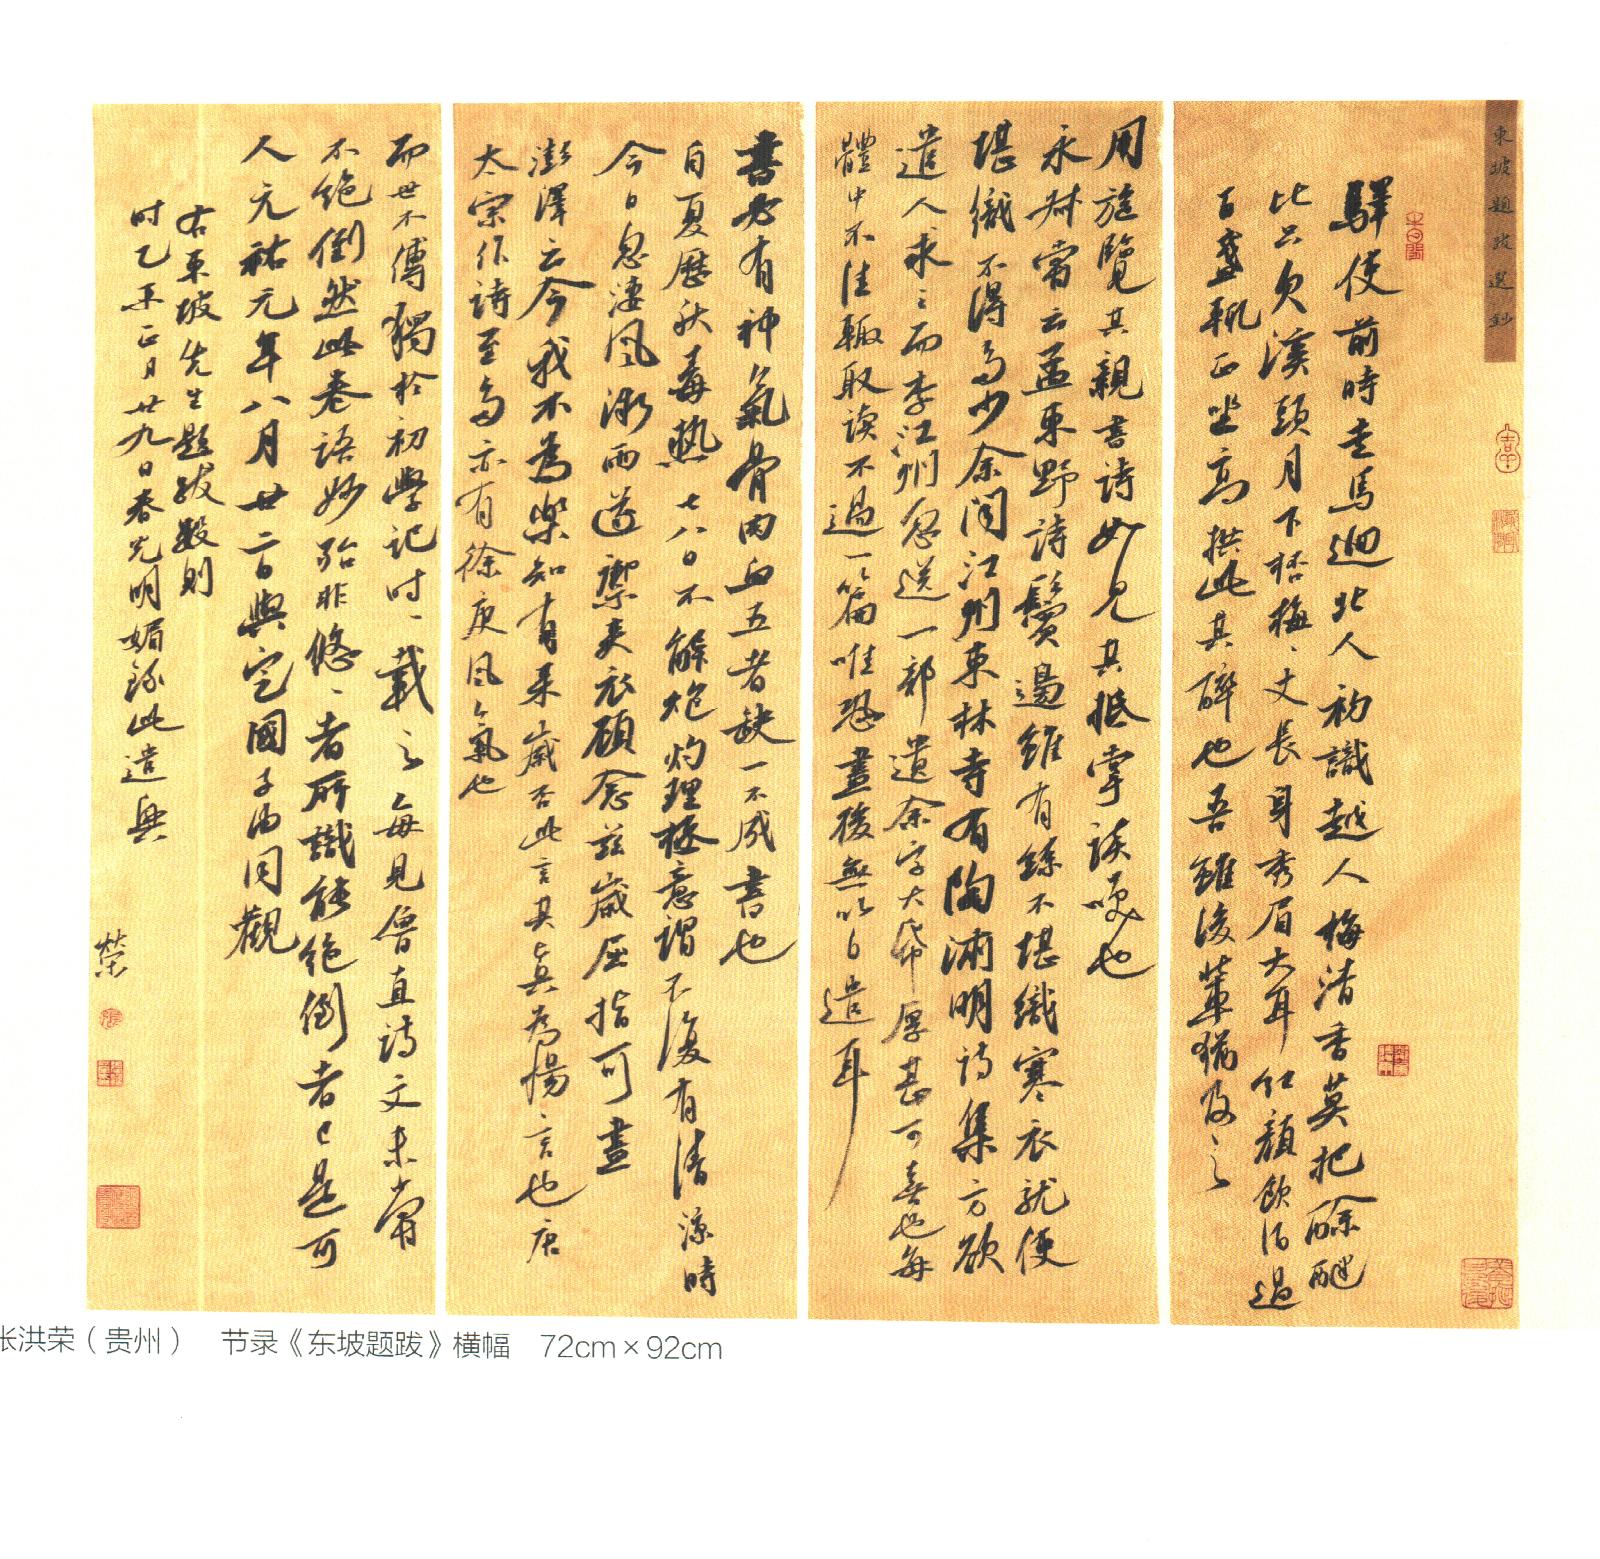 東坡題跋選鈔
驛使前時走馬迴北人初識越人梅清香莫把酴醾
比只欠溪頭月下杯梅二丈長身秀眉大耳紅顏飲酒過
百盞輒正坐高拱此其醉也吾雖後輩猶及之
用旋覽其親書詩如見其抵掌談笑也
永叔嘗云孟東野詩鬢邊雖有絲不堪織寒衣就使
堪織不得多少余聞江州東林寺有陶淵明詩集方欲
遣人求之而李江州忽送一部遺余字大紙厚甚可喜也每
體中不佳輒取讀不過一篇唯恐盡後無以自遣耳
書必有神氣骨肉血五者缺一不成書也
自夏歷秋毒熱七八日不解炮灼理極意謂不復有清涼時
今日忽淒風微雨遂禦夾衣顧念茲歲屈指可盡
澎澤云今我不為樂知有來歲否此言真為惕言也唐
太宗作詩至多亦有徐庾風氣也
而世不傳獨於初學記時時載之每見魯直詩文未嘗
不絕倒然此卷語妙殆非悠悠者所識能絕倒者已是可
人元祐元年八月廿二日與定國子由同觀
右東坡先生題跋數則
时乙未正月廿九日春光明媚錄此遣興
榮
张洪荣（贵州） 节录《东坡题跋》横幅 72cm×92cm